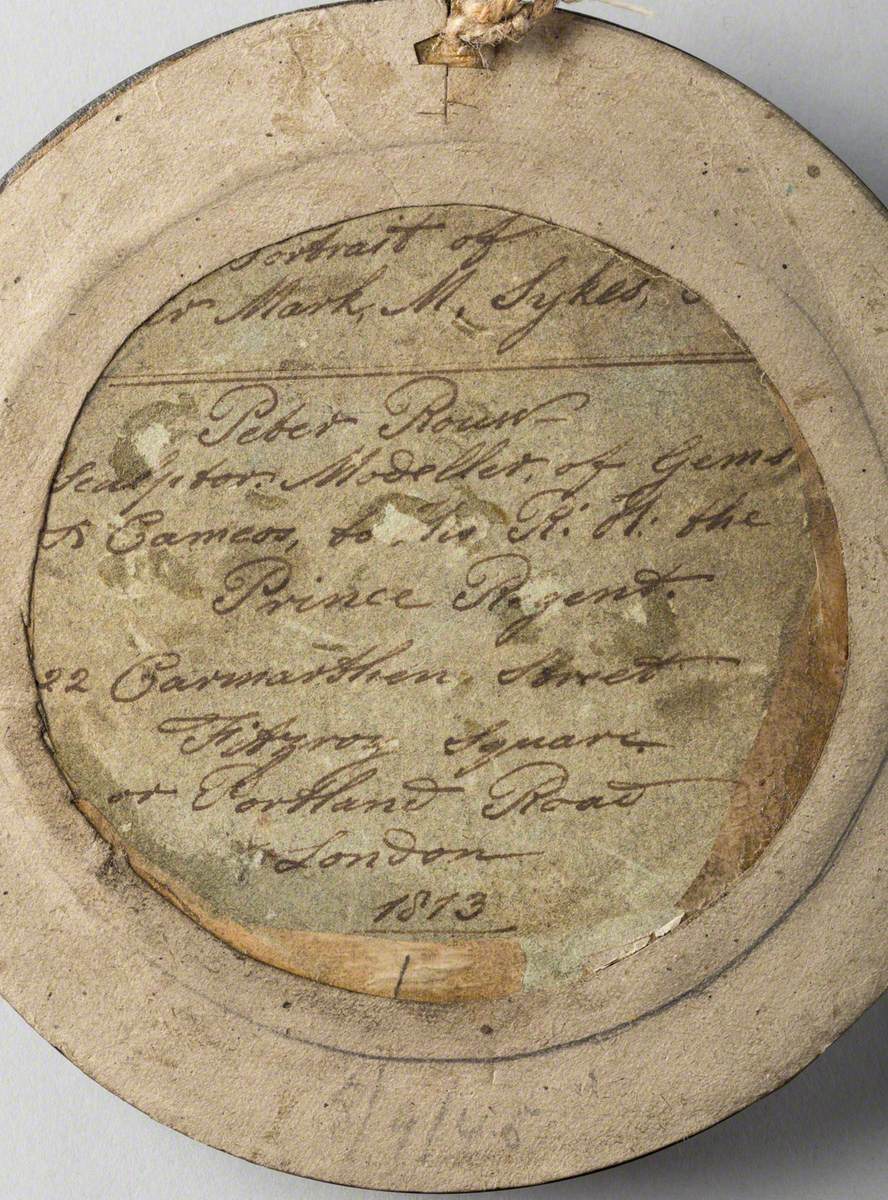 Portrait of
Mark, M, Sykes,
Peter Rouw
Sculptor. Modeller, of Gems
& Cameos, to his R: H: the
Prince Regent.
22 Carmarthen Street
Fitzroy Square
or Portland Road
London
1813